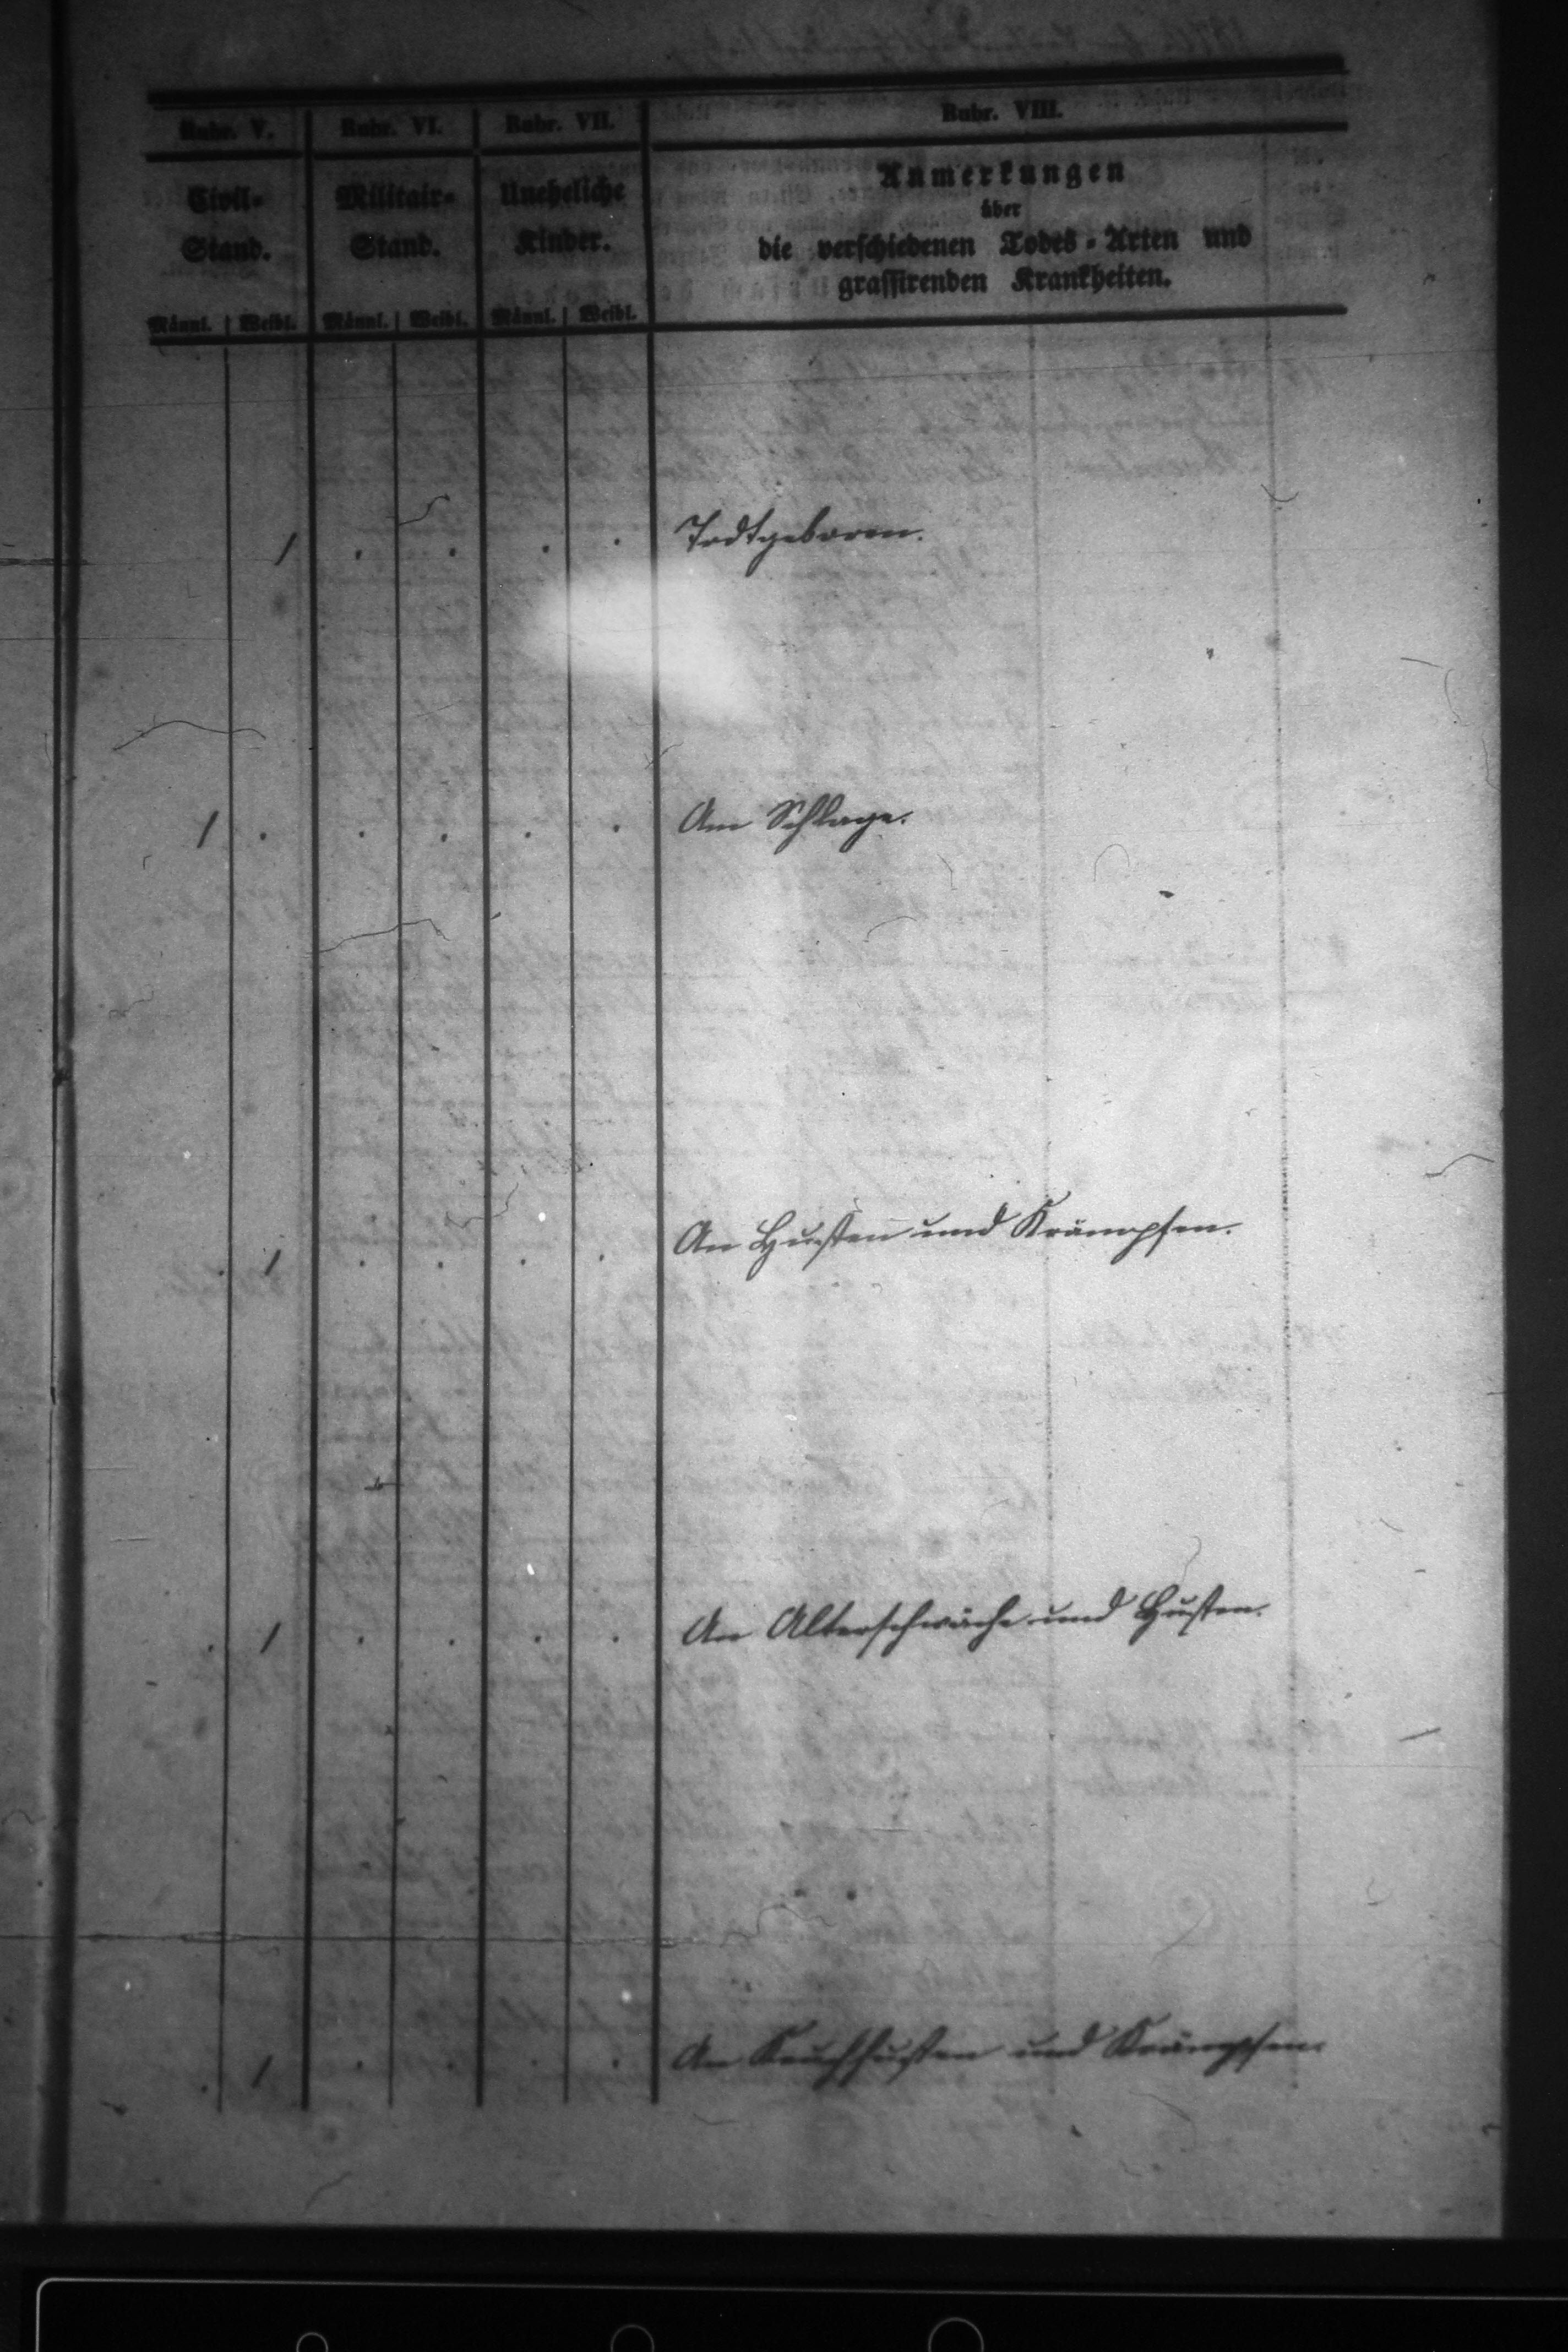 Rubr. V. Rubr. VI. Rubr. VII. Rubr. VIII.
Civil-Stand. Militair-Stand. Uneheliche Kinder. Anmerkungen
über
die verschiedenen Todes-Arten und
grassirenden Krankheiten.
Männl. Weibl. Männl. Weibl. Männl. Weibl.
1 . . . . Todtgeboren.
1 . . . . . Am Schlage.
. 1 . . . . An Husten und Krämpfen.
. 1 . . . . An Alterschwäche und Husten.
. 1 . . . . An Keuchhusten und Krämpfen.